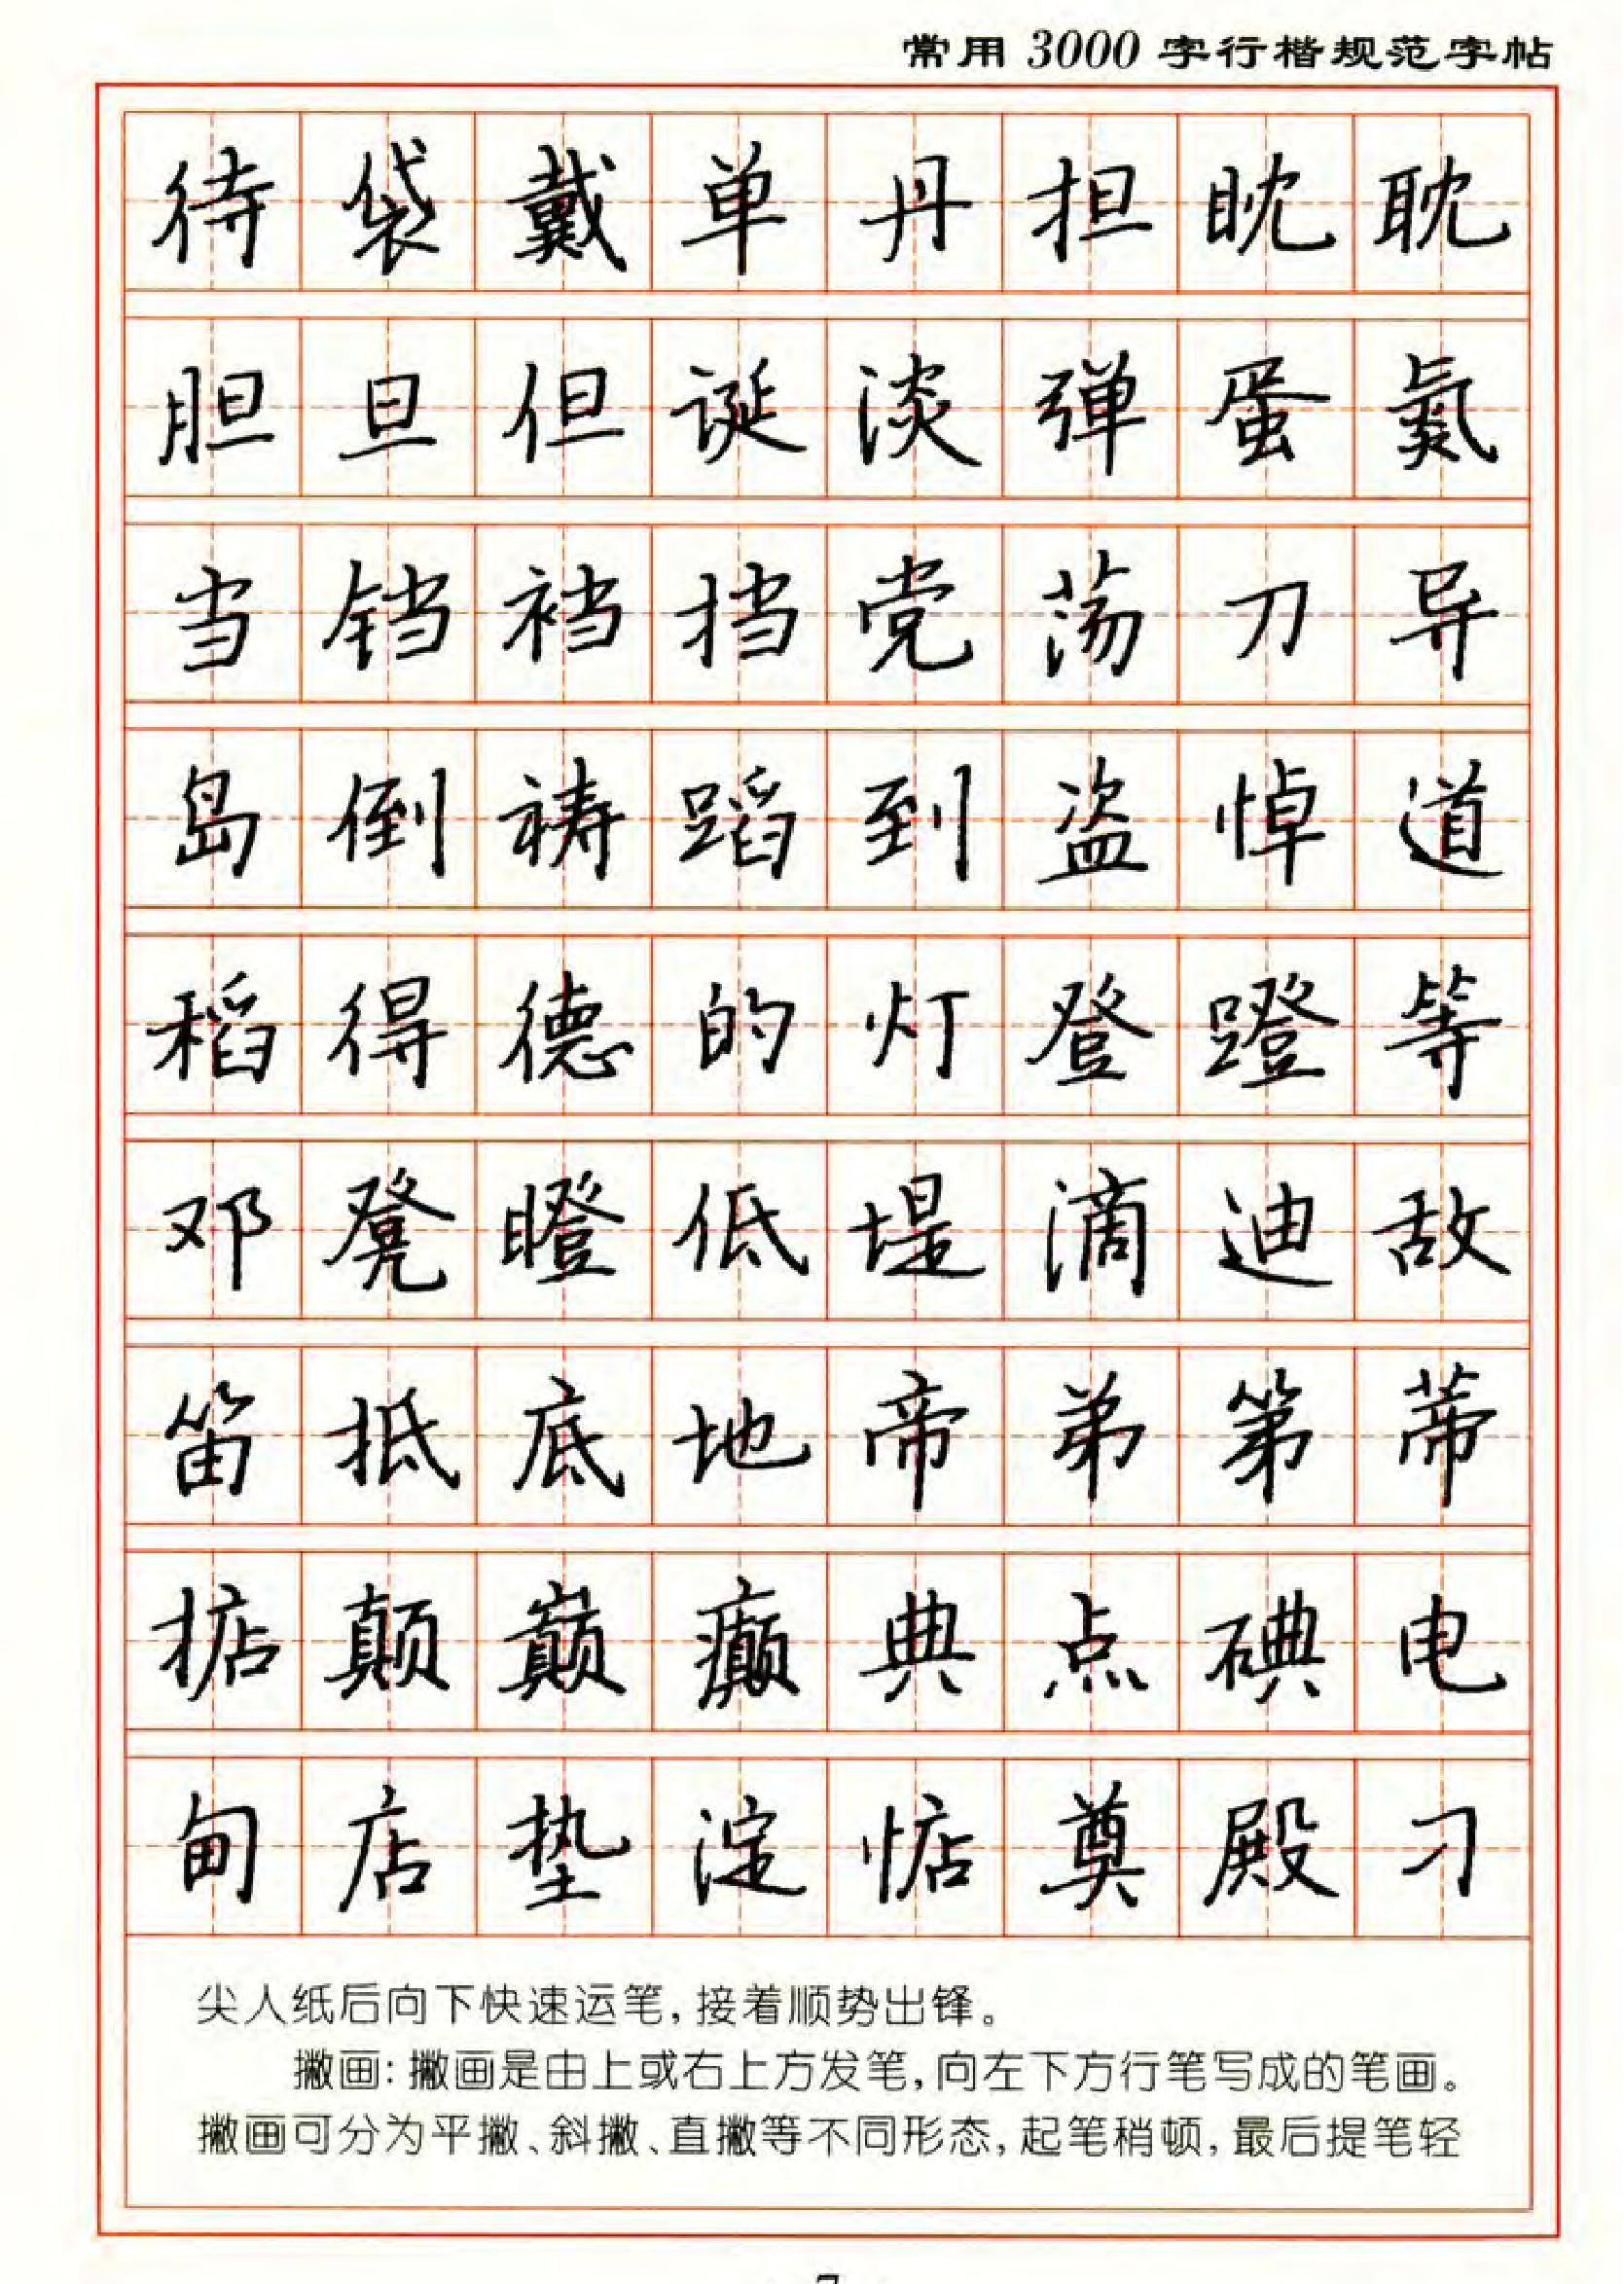 常用3000字行楷规范字帖
待袋戴单丹担眈耽
胆旦但诞淡弹蛋氮
当铛裆挡党荡刀导
岛倒祷蹈到盗悼道
稻得德的灯登蹬等
邓凳瞪低堤滴迪敌
笛抵底地帝弟第蒂
掂颠巅癫典点碘电
甸店垫淀惦奠殿刁
尖入纸后向下快速运笔,接着顺势出锋。
撇画:撇画是由上或右上方发笔,向左下方行笔写成的笔画。
撇画可分为平撇、斜撇、直撇等不同形态,起笔稍顿,最后提笔轻
7